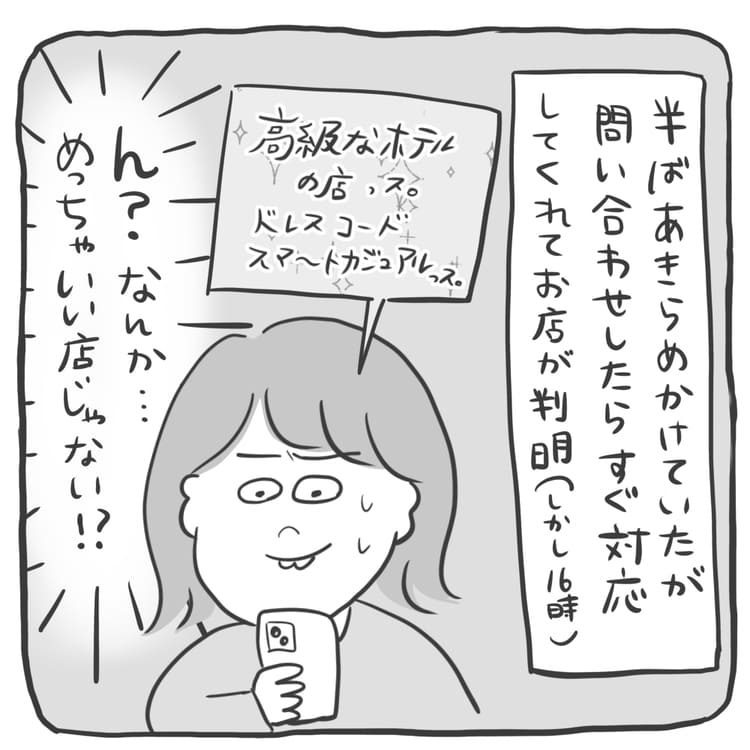 半ばあきらめかけていたが
問い合わせしたらすぐ対応
してくれてお店が判明(しかし16時)
高級なホテル
の店っス。
ドレスコード
スマ〜トカジュアルっス。
ん?・なんか…
めっちゃいい店じゃない!?